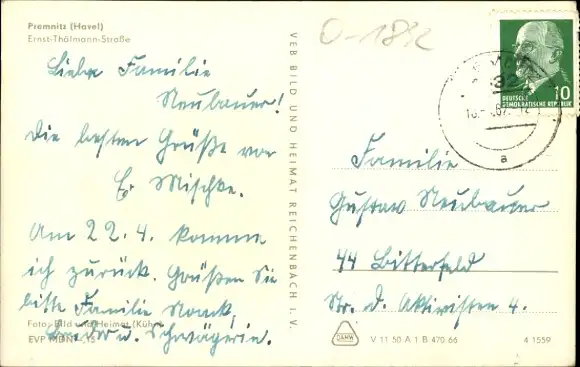 Premnitz (Havel)
Ernst-Thälmann-Straße
Liebe Familie
Neubauer!
Die besten Grüße von
E. Mischke.
Am 22.4. komme
ich zurück. Grüßen Sie
bitte Familie Noack,
Bruder u. Schwägerin.
Foto: Bild und Heimat (Kühn)
EVP MDN
VEB BILD UND HEIMAT REICHENBACH I. V.
O-1892
DEUTSCHE
DEMOKRATISCHE REPUBLIK
10
a
Familie
Gustav Neubauer
44 Bitterfeld
Str. d. Aktivisten 4.
DAHW
V 11 50 A 1 B 470 66
4 1559